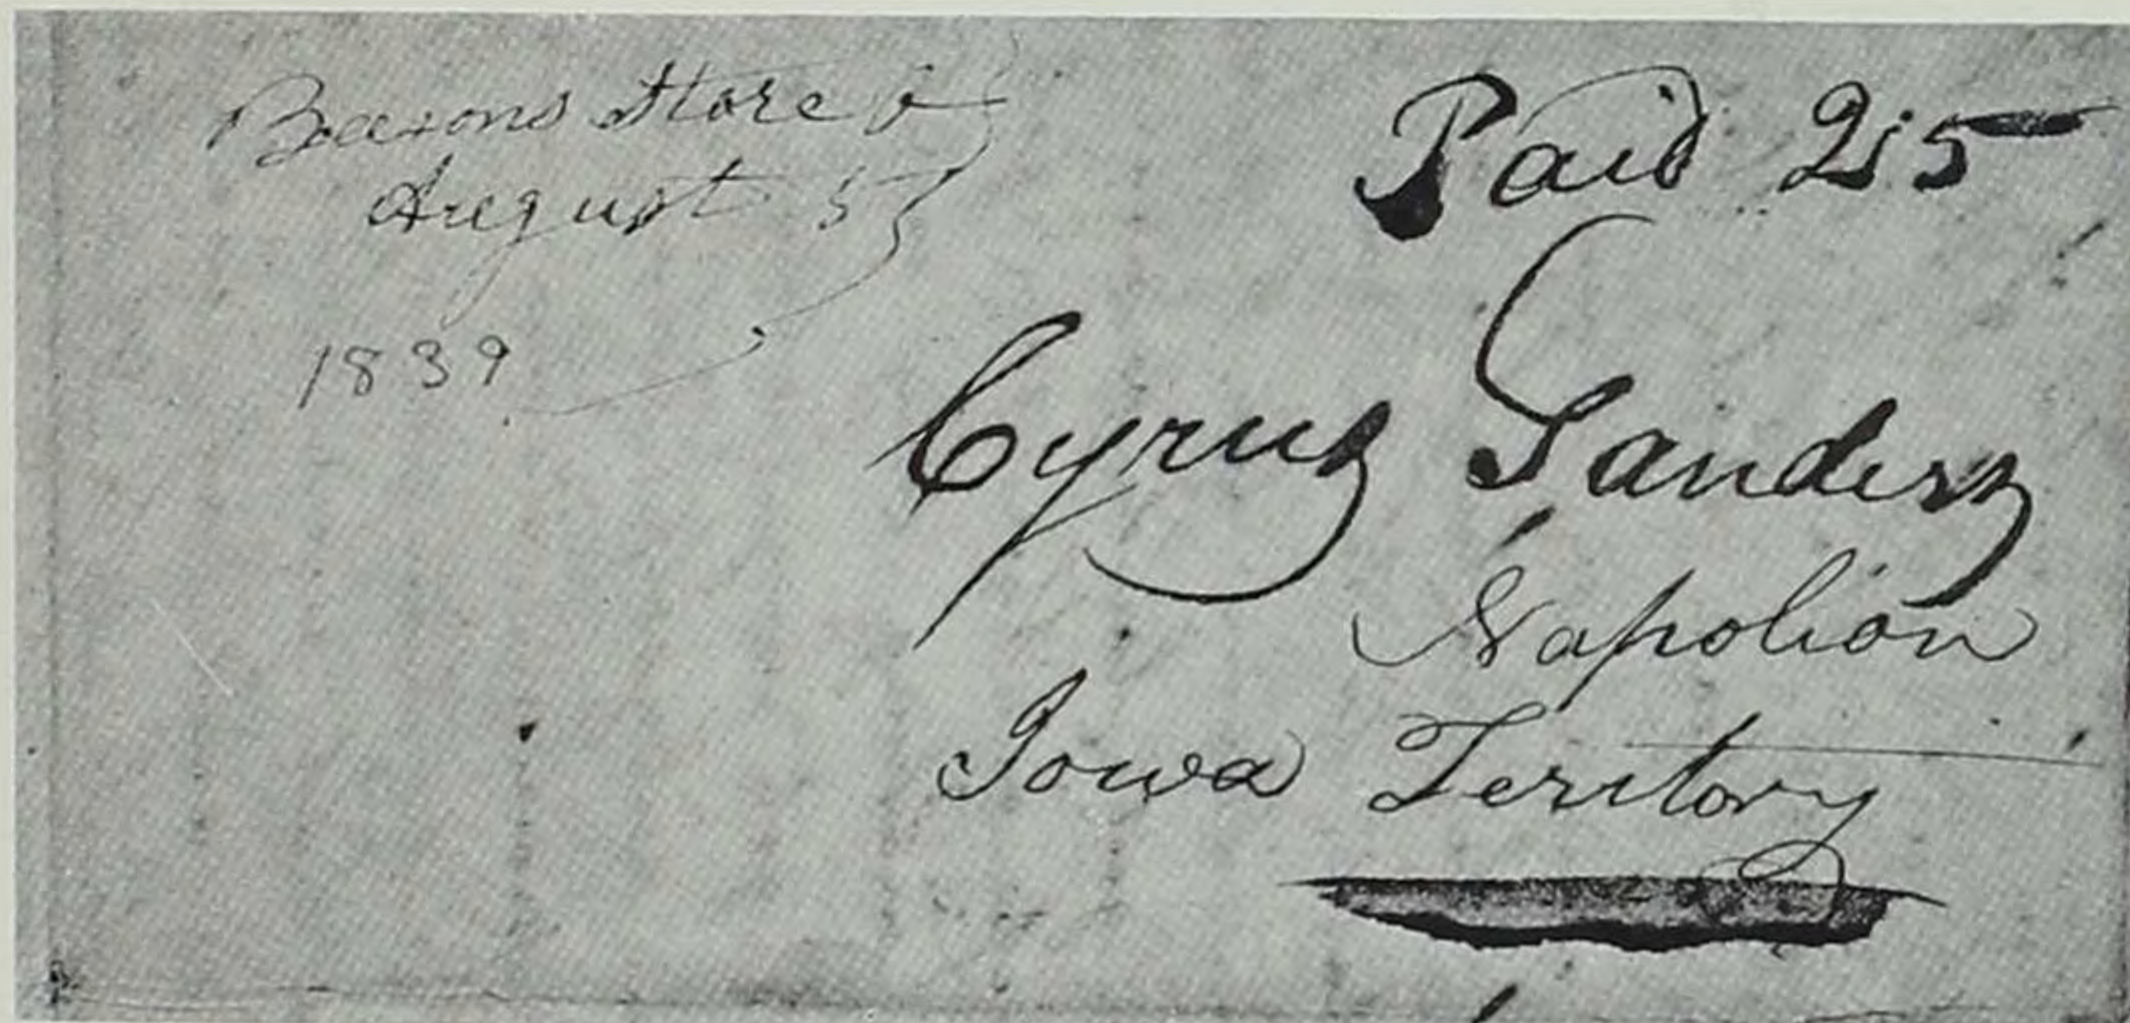 Beesons Store O
August 5
1839
Paid 25
Cyrus Sanders
Napolion
Iowa Territory